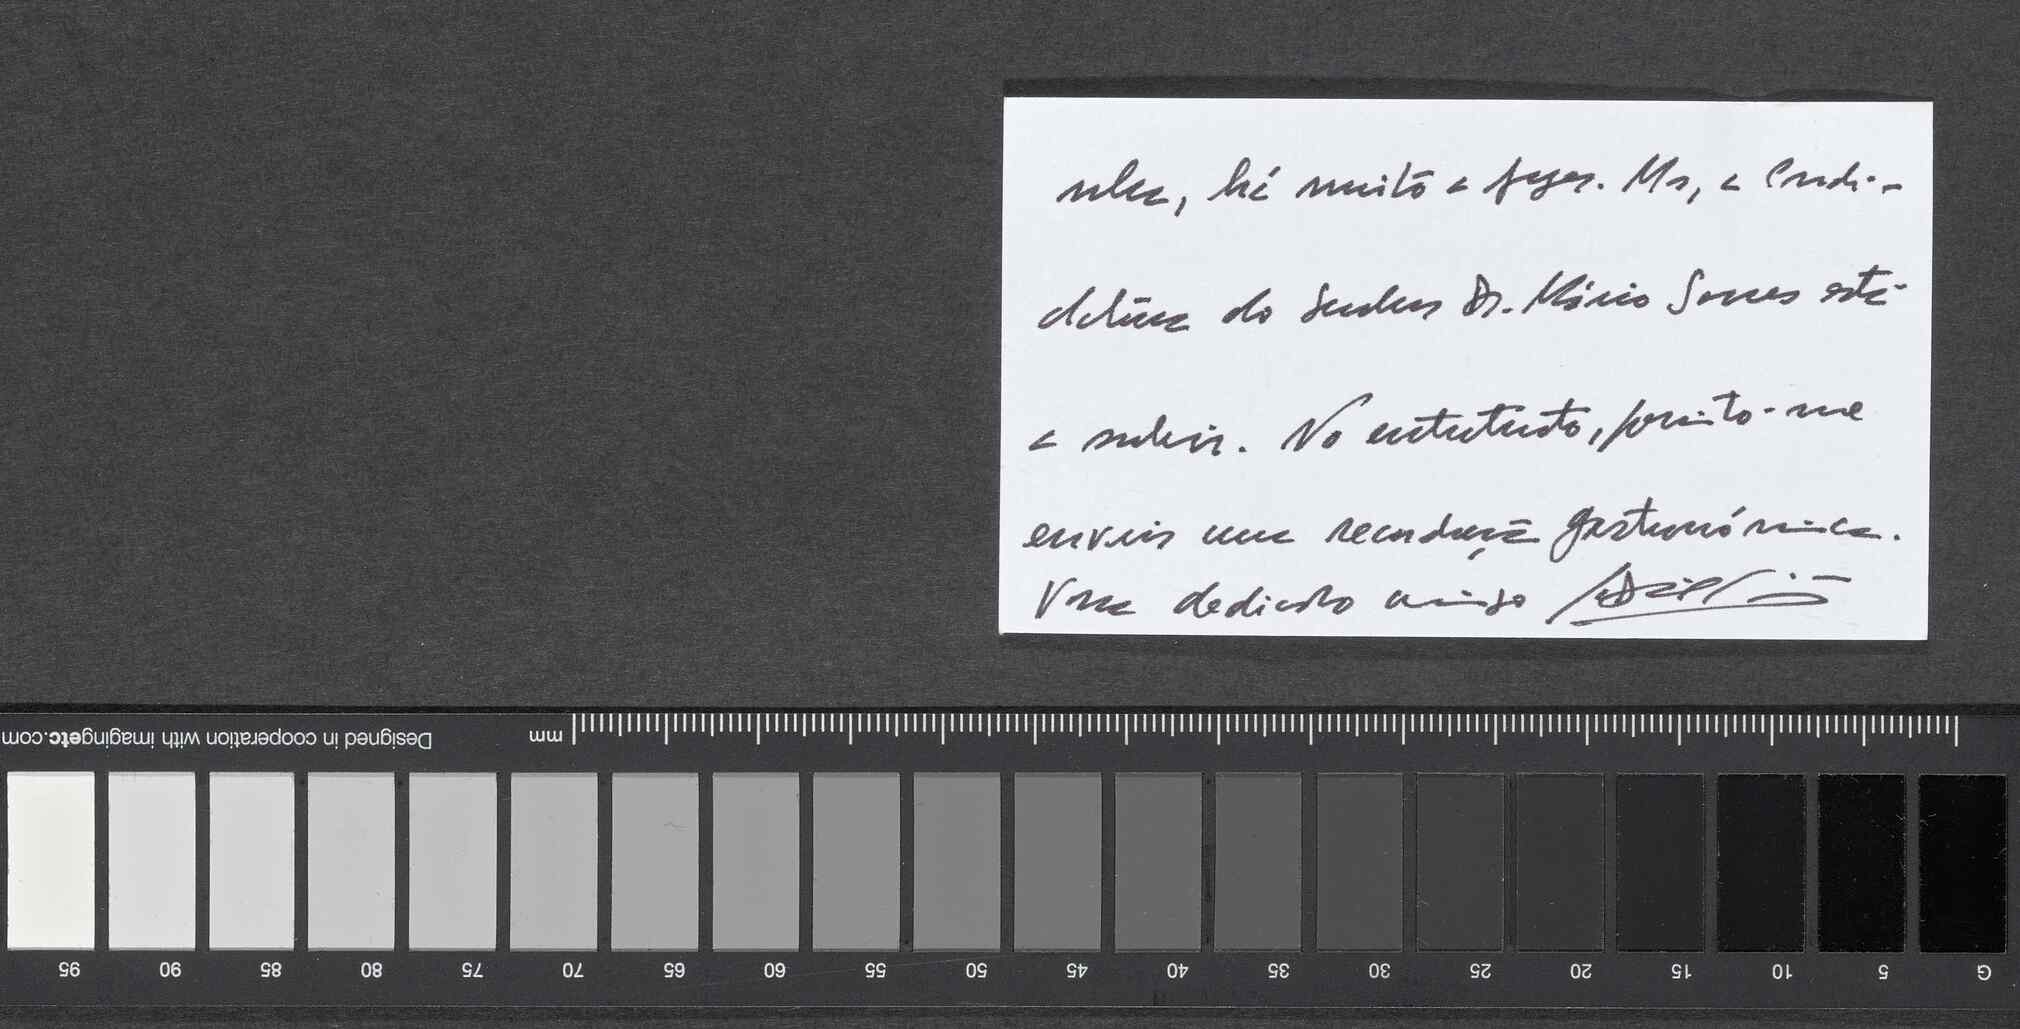 há muito a fazer. Mas, a candi-
datura do Senhor Dr. Mário Soares está
a subir. No entretanto, permito-me
enviar uma recordação gastronómica.
Vosso dedicado amigo
Designed in cooperation with imagingetc.com mm
95 90 85 80 75 70 65 60 55 50 45 40 35 30 25 20 15 10 5 G